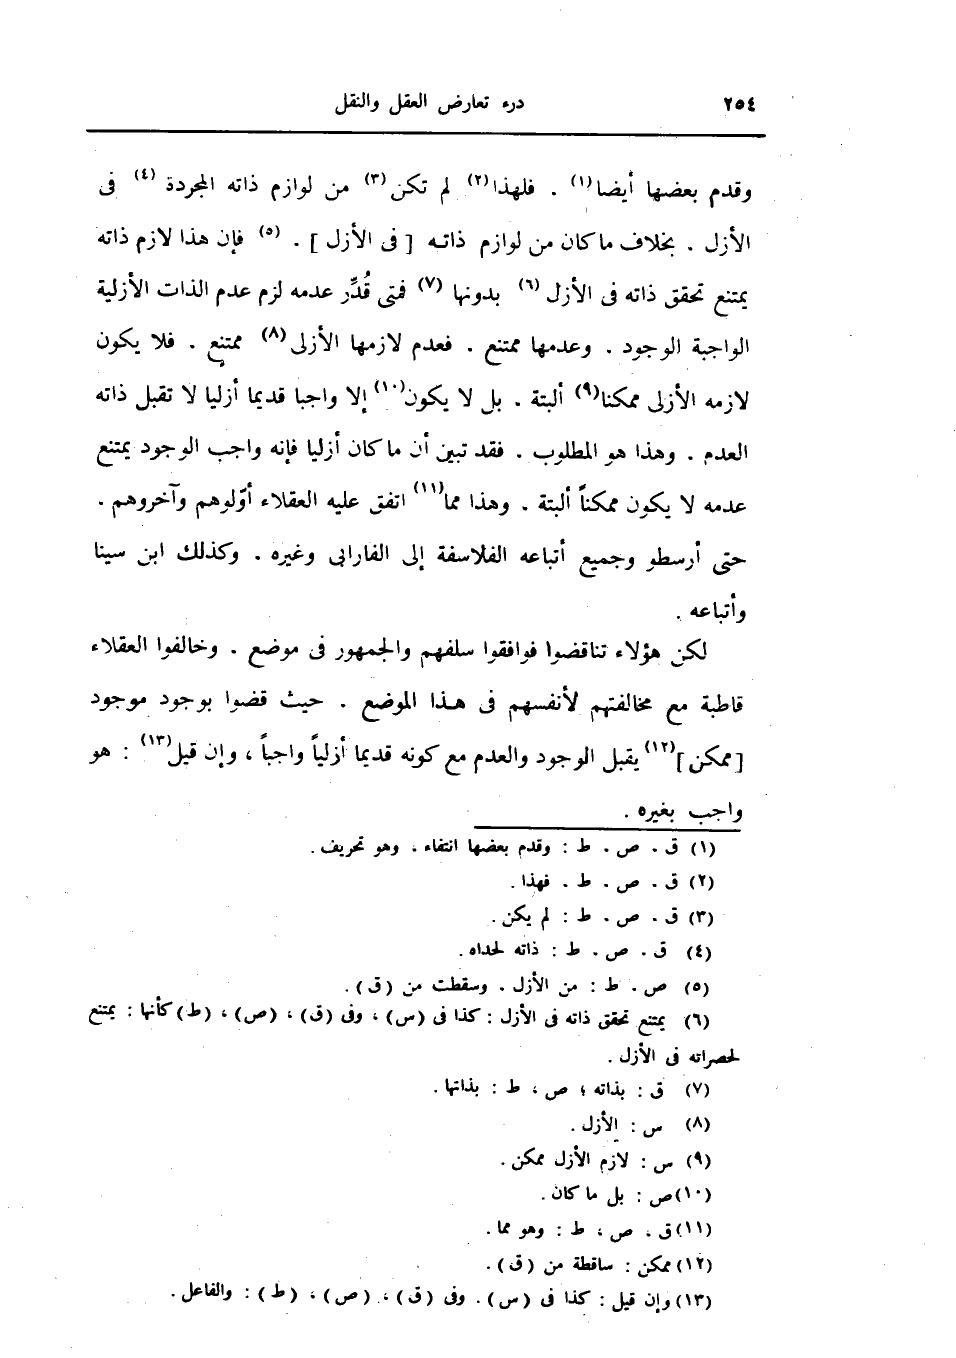 ٢٥٤ درء تعارض العقل والنقل
وقدم بعضها أيضا(١) . فلهذا(٢) لم تكن(٣) من لوازم ذاته المجردة (٤) فى
الأزل . بخلاف ما كان من لوازم ذاته [ فى الأزل ] . (٥) فإن هذا لازم ذاته
يمتنع تحقق ذاته فى الأزل (٦) بدونها (٧) فمتى قُدِّر عدمه لزم عدم الذات الأزلية
الواجبة الوجود . وعدمها ممتنع . فعدم لازمها الأزلى(٨) ممتنع . فلا يكون
لازمه الأزلى ممكنا(٩) ألبتة . بل لا يكون(١٠) إلا واجبا قديما أزليا لا تقبل ذاته
العدم . وهذا هو المطلوب . فقد تبين أن ما كان أزليا فإنه واجب الوجود يمتنع
عدمه لا يكون ممكناً ألبتة . وهذا مما(١١) اتفق عليه العقلاء أوّلوهم وآخروهم .
حتى أرسطو وجميع أتباعه الفلاسفة إلى الفارابى وغيره . وكذلك ابن سينا
وأتباعه .
لكن هؤلاء تناقضوا فوافقوا سلفهم والجمهور فى موضع . وخالفوا العقلاء
قاطبة مع مخالفتهم لأنفسهم فى هذا الموضع . حيث قضوا بوجود موجود
[ممكن](١٢) يقبل الوجود والعدم مع كونه قديما أزلياً واجباً ، وإن قيل(١٣) : هو
واجب بغيره .
(١) ق . ص . ط : وقدم بعضها انتفاء ، وهو تحريف .
(٢) ق . ص . ط . فهذا .
(٣) ق . ص . ط : لم يكن .
(٤) ق . ص . ط : ذاته لحداه .
(٥) ص . ط : من الأزل . وسقطت من (ق) .
(٦) يمتنع تحقق ذاته فى الأزل : كذا فى (س) ، وفى (ق) ، (ص) ، (ط) كأنها : يمتنع
لحصراته فى الأزل .
(٧) ق : بذاته ؛ ص ، ط : بذاتها .
(٨) س : الأزل .
(٩) س : لازم الأزل ممكن .
(١٠) ص : بل ما كان .
(١١) ق ، ص ، ط : وهو مما .
(١٢) ممكن : ساقطة من (ق) .
(١٣) وإن قيل : كذا فى (س) . وفى (ق) ، (ص) ، (ط) : والفاعل .